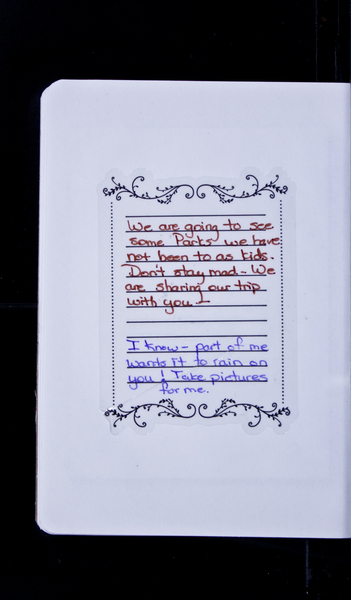 We are going to see
some Parks we have
not been to as kids.
Don't stay mad - We
are sharing our trip
with you!
I know - part of me
wants it to rain on
you! Take pictures
for me.